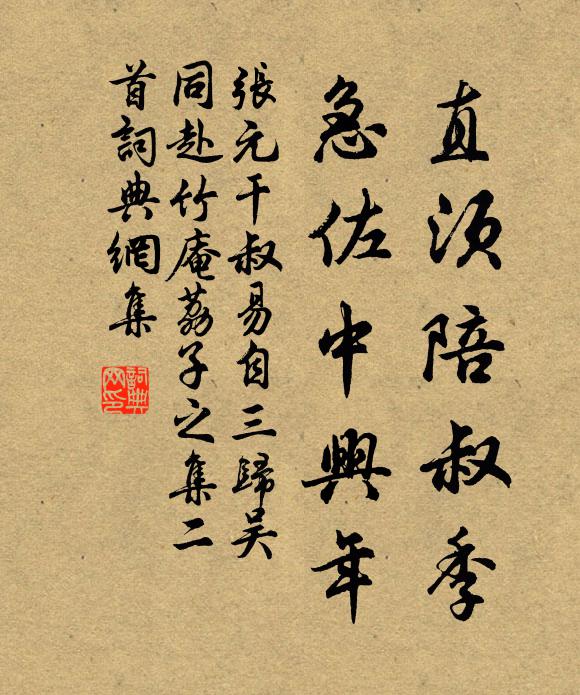 直須陪叔季
急佐中興年
張元干叔易自三歸吴
同赴竹庵荔子之集二
首詞典網集
詞典
网印